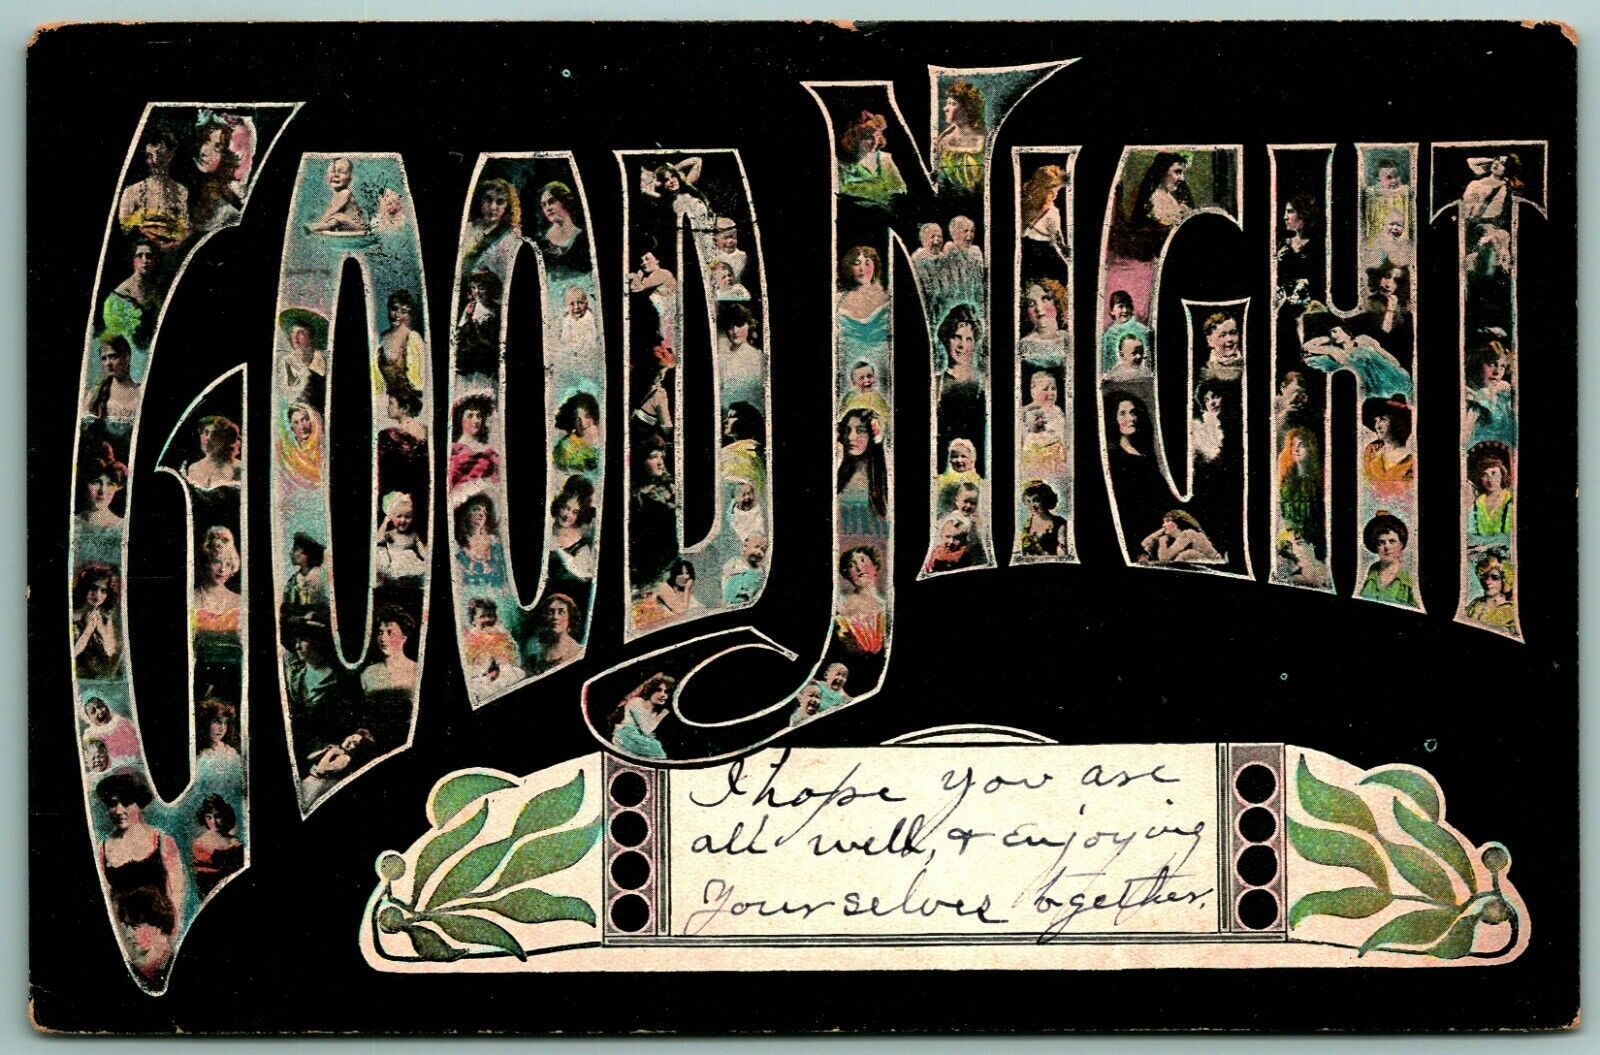 GOOD NIGHT
I hope you are
all well, & enjoying
yourselves together.